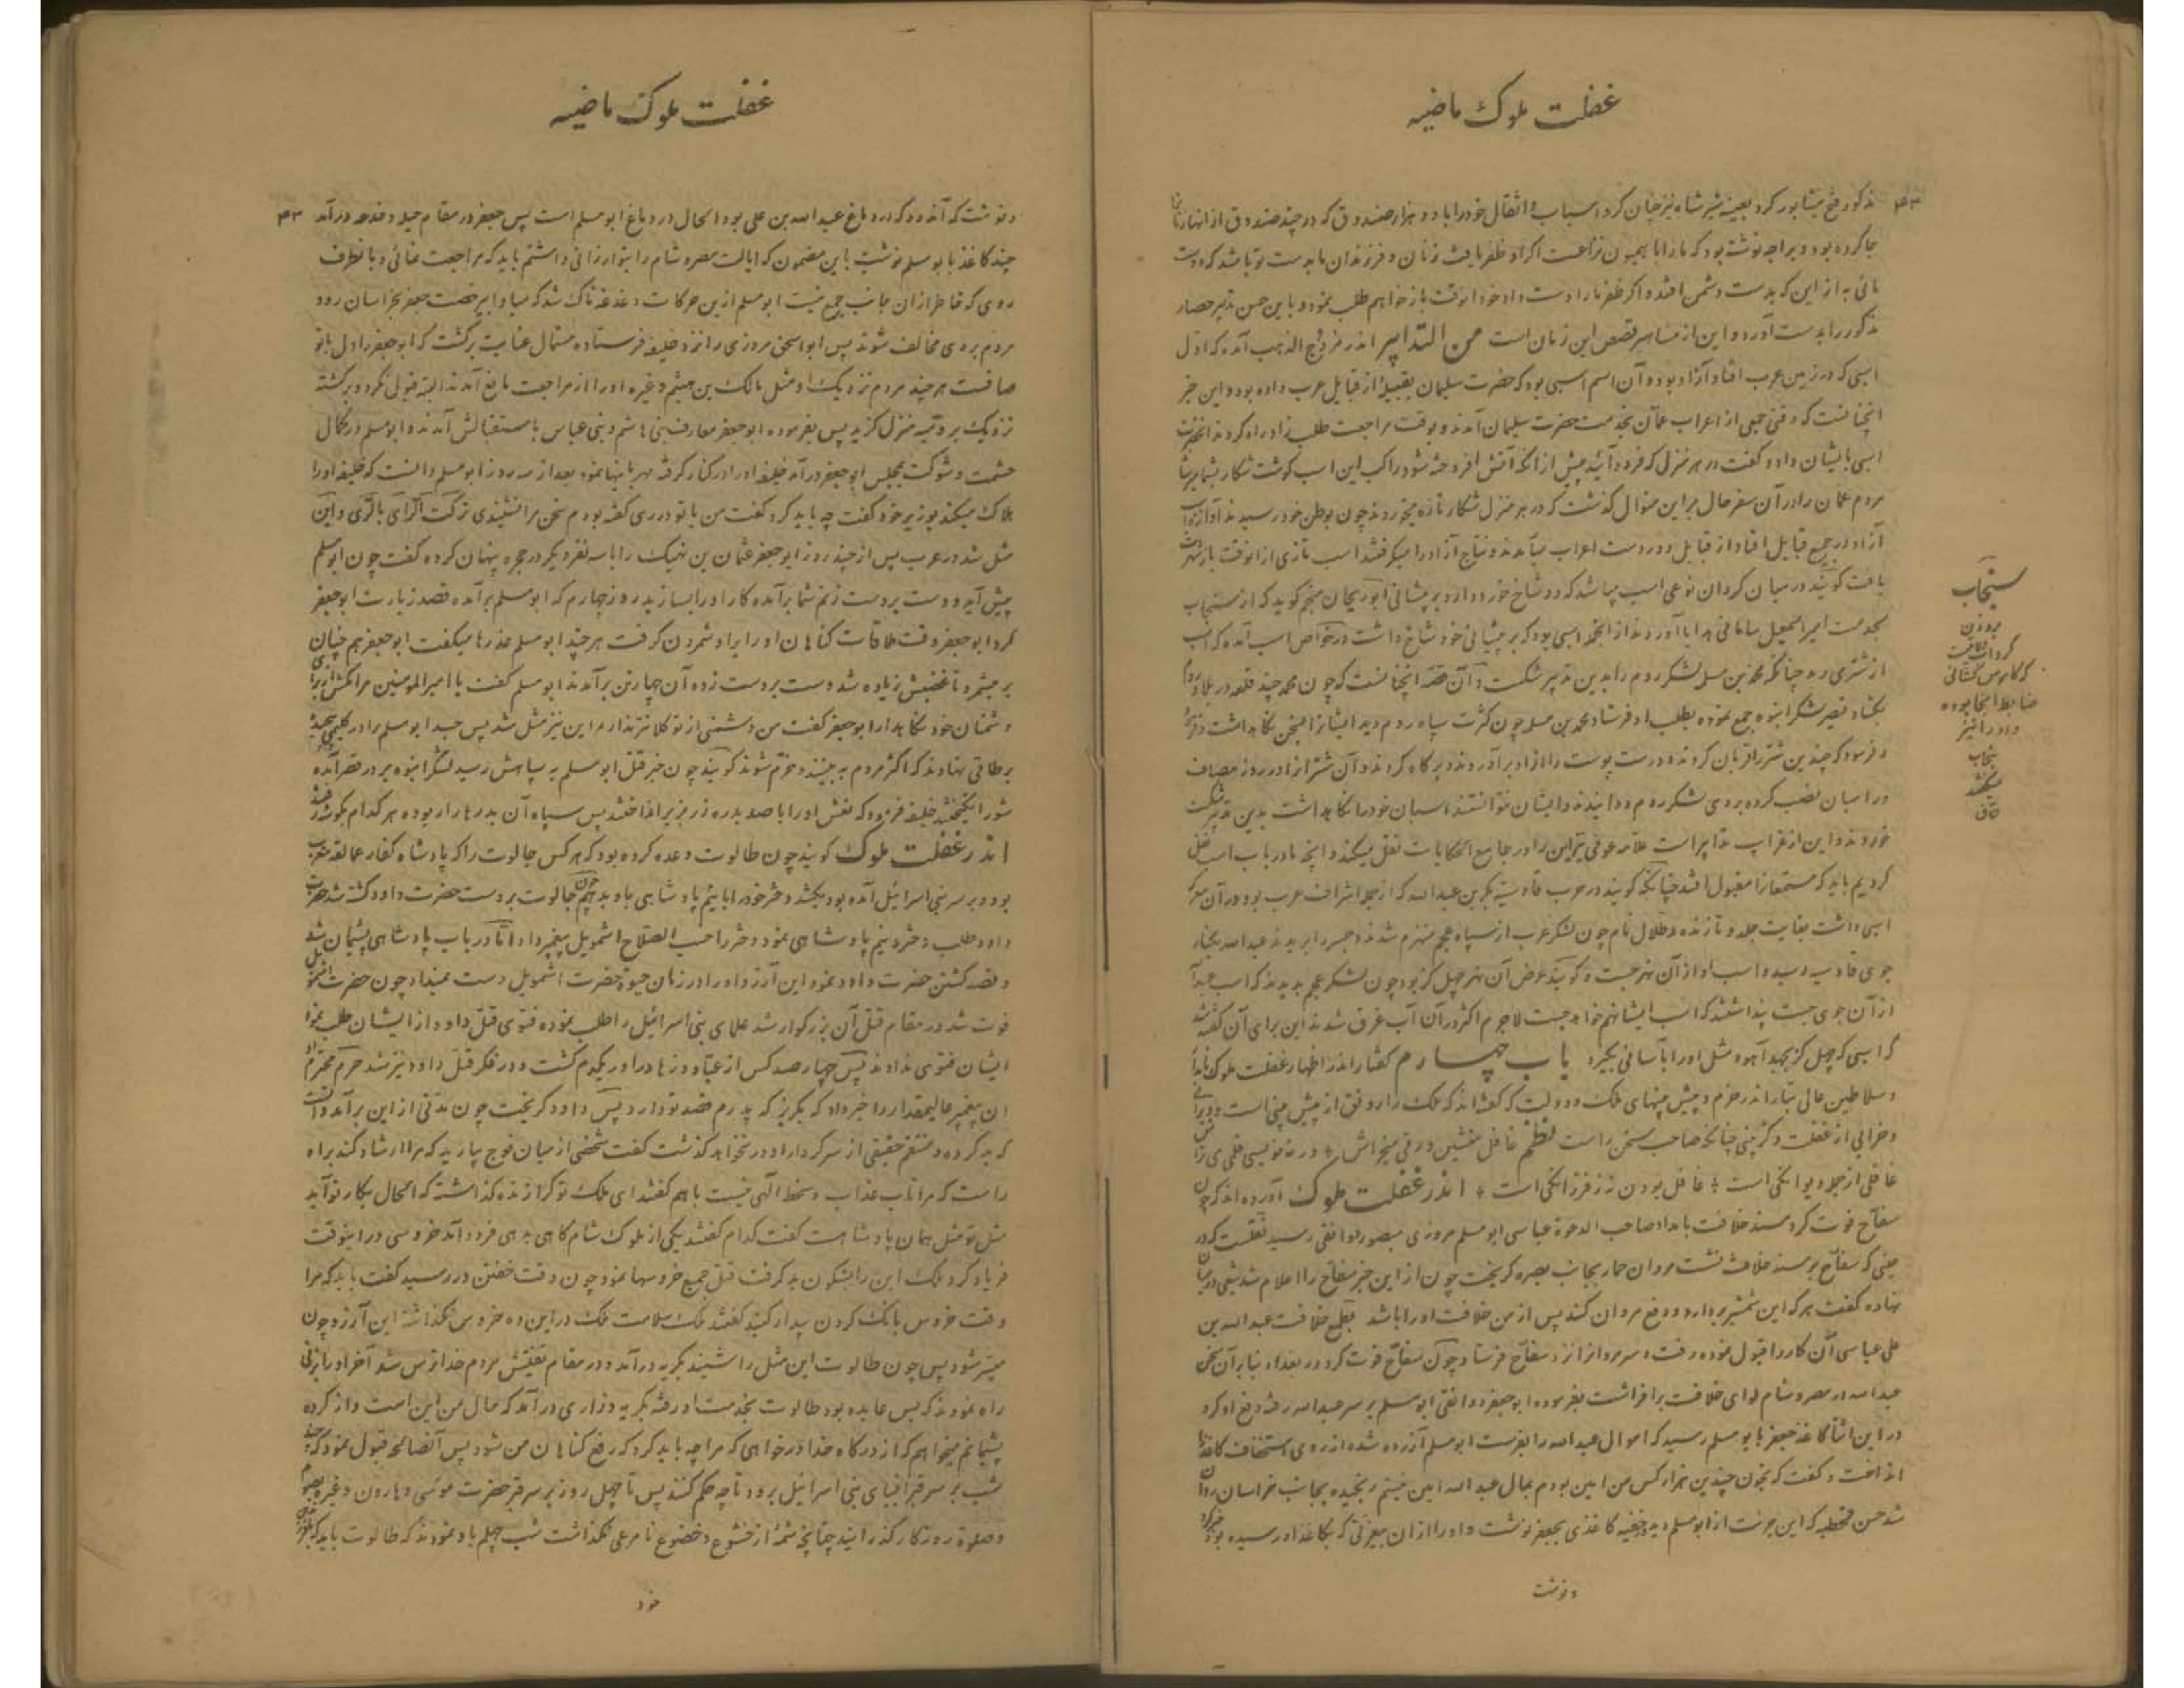 غفلت ملوک ماضیه
مذکور فتح نیشابور کرد بعینه شیر شاه نیز چنان کرد اسباب و اثقال خود را با دو هزار صندوق که در چند صندوق از انها زنان
جا کرده بود و براجه نوشته بود که ما را با همیون نزاعست اگر او ظفر یافت زنان و فرزندان ما بدست تو باشد که دوست
مائی به از این که بدست دشمن افتد و اگر ظفر ما را دست داد خود انوقت باز خواهم طلب نمود و باین حسن تدبیر حصار
مذکور را بدست آورد و این از مشاهیر قصص این زمان است من التدابیر اندر مروج الذهب آمده که اول
اسبی که در زمین عرب افتاد آزاد بوده و آن اسم اسبی بود که حضرت سلیمان بقبیلهٔ از قبایل عرب داده بود و این خبر
انچنانست که وقتی جمعی از اعراب عمان بخدمت حضرت سلیمان آمدند و بوقت مراجعت طلب زاد راه کردند انحضرت
اسبی بایشان داد و گفت در هر منزل که فرود آئید پیش از انکه آتش افروخته شود راکب این اسب گوشت شکار بشما برساند
مردم عمان را در آن سفر حال بر این منوال گذشت که در هر منزل شکار تازه میخوردند چون بوطن خود رسیدند آوازهٔ
آزاد در جمیع قبایل افتاد از قبایل دور دست اعراب میآمدند و نتاج آزاد را میگرفتند اسب تازی از انوقت باز شهرت
یافت گویند در میان کردان نوعی اسب میباشد که دو شاخ خورد دارد بر پیشانی ابوریحان منجم گوید که از سنجاب
بخدمت امیر اسمعیل سامانی هدایا آوردند از انجمله اسبی بود که بر پیشانی خود شاخ داشت در خواص اسب آمده که اسب
از شتر می رمد چنانکه محمد بن مسلم لشکر روم را بدین تدبیر شکست و آن قصه انچنانست که چون محمد چند قلعه در بلاد روم
بگشاد قیصر لشکر انبوه جمع نموده بطلب او فرستاد محمد بن مسلم چون کثرت سپاه روم دید
و فرمود که چندین شتر را قربان کردند و درست پوست را از او برآوردند و پر کاه کردند و آن شتر انرا در روز مصاف
در میان نصب کرده بروی لشکر روم دوانیدند و ایشان نتوانستند اسبان خود را نگاه داشت بدین تدبیر شکست
خوردند و این از غرایب تدابیر است علامه عوفی نیز این را در جامع الحکایات نقل میکند و انچه ما در باب اسب نقل
کردیم باید که مستمعان را مقبول افتد چنانکه گویند در حرب قادسیه بکر بن عبد الله که از جمله اشراف عرب بود در آن معرکه
اسبی داشت بغایت جلد و تازنده و طلال نام چون لشکر عرب از سپاه عجم منهزم شدند و جسر را بریدند عبد الله بکنار
جوی قادسیه رسید و اسب او از آن نهر جست و گویند عرض آن نهر چهل گز بود چون لشکر عجم بدیدند که اسب عبد الله
از آن جوی جست پنداشتند که اسب ایشان هم خواهد جست لاجرم اکثر در آن آب غرق شدند این برای آن گفته شد
که اسبی که چهل گز بجهد آهو و مثل او را بآسانی بگیرد باب چهارم گفتار اندر اظهار غفلت ملوک نامدار
و سلاطین عالی تبار اندر حزم و پیش بینهای ملک و دولت که گفته اند که ملک را رونق از پیش بینی است و ویرانی
و خرابی از غفلت و کم بینی چنانکه صاحب سخن راست نظم غافل منشین ورقی میخراش * ور ننویسی قلمی می تراش
غافلی از جمله دیوانگی است * غافل بودن نز فرزانگی است * اندر غفلت ملوک آورده اند که چون
سفاح فوت کرد مسند خلافت بامداد صاحب الدعوة عباسی ابو مسلم مروزی بمنصور دوانقی رسید نقلست که در
حینی که سفاح بر مسند خلافت نشست مروان حمار بجانب بصره گریخت چون از این خبر سفاح را اعلام شد شمشیری در میان
نهاده گفت هر که این شمشیر بردارد و دفع مروان کند پس از من خلافت او را باشد بطمع خلافت عبد الله بن
علی عباسی آن کار را قبول نموده رفت و سر مروان را نزد سفاح فرستاد چون سفاح فوت کرد در بغداد بنا بر آن سخن
عبد الله در مصر و شام لوای خلافت برافراشت بفرموده ابو جعفر دوانقی ابو مسلم بر سر عبد الله رفته دفع او کرد
در این اثنا کاغذ جعفر بابو مسلم رسید که اموال عبد الله را بفرست ابو مسلم آزرده شده از روی استخفاف کاغذ را
انداخت و گفت که بخون چندین هزار کس من امین بودم بمال عبد الله امین نیستم رنجیده بجانب خراسان روان
شد حسن قحطبه که این جرئت از ابو مسلم دید خفیه کاغذی بجعفر نوشت و او را از آن بیعزتی که بکاغذ او رسیده بود خبر کرد
و نوشت
سنجاب
بروزن
گرداب
که کاموس کشانی
ضابط انجا بوده
و او را نیز
سنجاب
میگفتند
غفلت ملوک ماضیه
و نوشت که آن دود که در دماغ عبد الله بن علی بود الحال در دماغ ابو مسلم است پس جعفر در مقام حیله و خدعه درآمد ۴۳
چند کاغذ بابو مسلم نوشت باین مضمون که ایالت مصر و شام را بتو ارزانی داشتم باید که مراجعت نمائی و بانطرف
روی که خاطر از ان جانب جمع نیست ابو مسلم ازین حرکات دغدغه ناک شد که مبادا بیرخصت جعفر بخراسان رود
مردم بروی مخالف شوند پس ابو اسحق مروزی را نزد خلیفه فرستاده مشمال عنایت برگشت که ابو جعفر را دل با تو
صافست هر چند مردم نزدیک او مثل مالک بن هیثم و غیره او را از مراجعت مانع آمدند البته قبول نکرد و برگشته
نزدیک برومیه منزل گزید پس بفرموده ابو جعفر معارف بنی هاشم و بنی عباس باستقبالش آمدند و ابو مسلم در کمال
حشمت و شوکت بمجلس ابو جعفر درآمد خلیفه او را در کنار گرفته مهربانیها نمود بعد از سه روز ابو مسلم دانست که خلیفه او را
هلاک میکند بوزیر خود گفت چه باید کرد گفت من با تو در ری گفته بودم سخن مرا نشنیدی ترکت الرای بالری و این
مثل شد در عرب پس از چند روز ابو جعفر عثمان بن نهیک را با سه نفر دیگر در حجره پنهان کرده گفت چون ابو مسلم
پیش آید و دست بر دست زنم شما برآمده کار او را بسازید روز چهارم که ابو مسلم برآمده قصد زیارت ابو جعفر
کرد ابو جعفر وقت ملاقات گناهان او را برو شمردن گرفت هر چند ابو مسلم عذرها میگفت ابو جعفر هم چنان
بر میشمرد تا غضبش زیاده شد دست بر دست زده آن چهار تن برآمدند ابو مسلم گفت یا امیر المومنین مرا مکش از برای
دشمنان خود نگاهدار ابو جعفر گفت من دشمنی از تو کلانتر ندارم این نیز مثل شد پس جسد ابو مسلم را در گلیمی پیچیده
بر طاقی نهادند که اکثر مردم به بینند و خرم شوند گویند چون خبر قتل ابو مسلم به سپاهش رسید لشکر انبوه بر در قصر آمده
شور انگیختند خلیفه فرمود که نعش او را با صد بدره زر بزیر انداختند پس سپاه آن بدرها را ربوده هر کدام بگوشه رفتند
اندر غفلت ملوک گویند چون طالوت وعده کرده بود که هر کس جالوت را که پادشاه کفار عمالقه مغرب
بود و بر سر بنی اسرائیل آمده بود بکشد دختر خود را با نیم پادشاهی باو بدهم چون جالوت بر دست حضرت داود کشته شد حضرت
داود طلب دختر و نیم پادشاهی نمود دختر را حسب الصلاح اشمویل پیغمبر داد اما در باب پادشاهی پشیمان شد
و قصد کشتن حضرت داود نمود این آرزو او را در زمان حیوة حضرت اشمویل دست نمیداد چون حضرت اشمویل
فوت شد در مقام قتل آن بزرگوار شد علمای بنی اسرائیل را طلب نموده فتوی قتل داود از ایشان طلب نمود
ایشان فتوی ندادند پس چهار صد کس از عباد و زهاد را در یکدم گشت و در فکر قتل داود نیز شد حرم محترم او
ان پیغمبر عالیمقدار را خبر داد که بگریز که پدرم قصد تو دارد پس داود گریخت چون مدتی از این برآمد دانست
که بد کرده و منتقم حقیقی از سر کردار او در نخواهد گذشت گفت شخصی از میان فوج بیارید که مرا ارشاد کند براه
راست که مرا تاب عذاب و سخط الهی نیست باهم گفتند ای ملک تو کرا زنده گذاشته که الحال بکار تو آید
مثل تو مثل همان پادشاهست گفت کدام گفتند یکی از ملوک شام گاهی بدهی فرود آمد خروسی در اینوقت
فریاد کرد ملک این را بشگون بد گرفت قتل جمیع خروسها نمود چون وقت خفتن در رسید گفت باید که مرا
وقت خروس بانگ کردن بیدار کنید گفتند ملک سلامت ملک در این ده خروس نگذاشته این آرزو چون
میسر شود پس چون طالوت این مثل را شنید بگریه درآمد و در مقام تفتیش مردم خدا ترس شد آخر او را بزنی
راه نمودند که بس عابده بود طالوت بخدمت او رفته بگریه و زاری درآمد که حال من این است و از کرده
پشیمانم میخواهم که از درگاه خدا در خواهی که مرا چه باید کرد که رفع گناهان من شود پس آنصالحه قبول نمود که چند
شب بر سر قبر انبیای بنی اسرائیل برود تا چه حکم کنند پس تا چهل روز بر سر قبر حضرت موسی و هارون و غیره بصوم
و صلوة روزگار گذرانید چنانچه شمهٔ از خشوع و خضوع نامرعی نگذاشت شب چهلم باو نمودند که طالوت باید که
خود